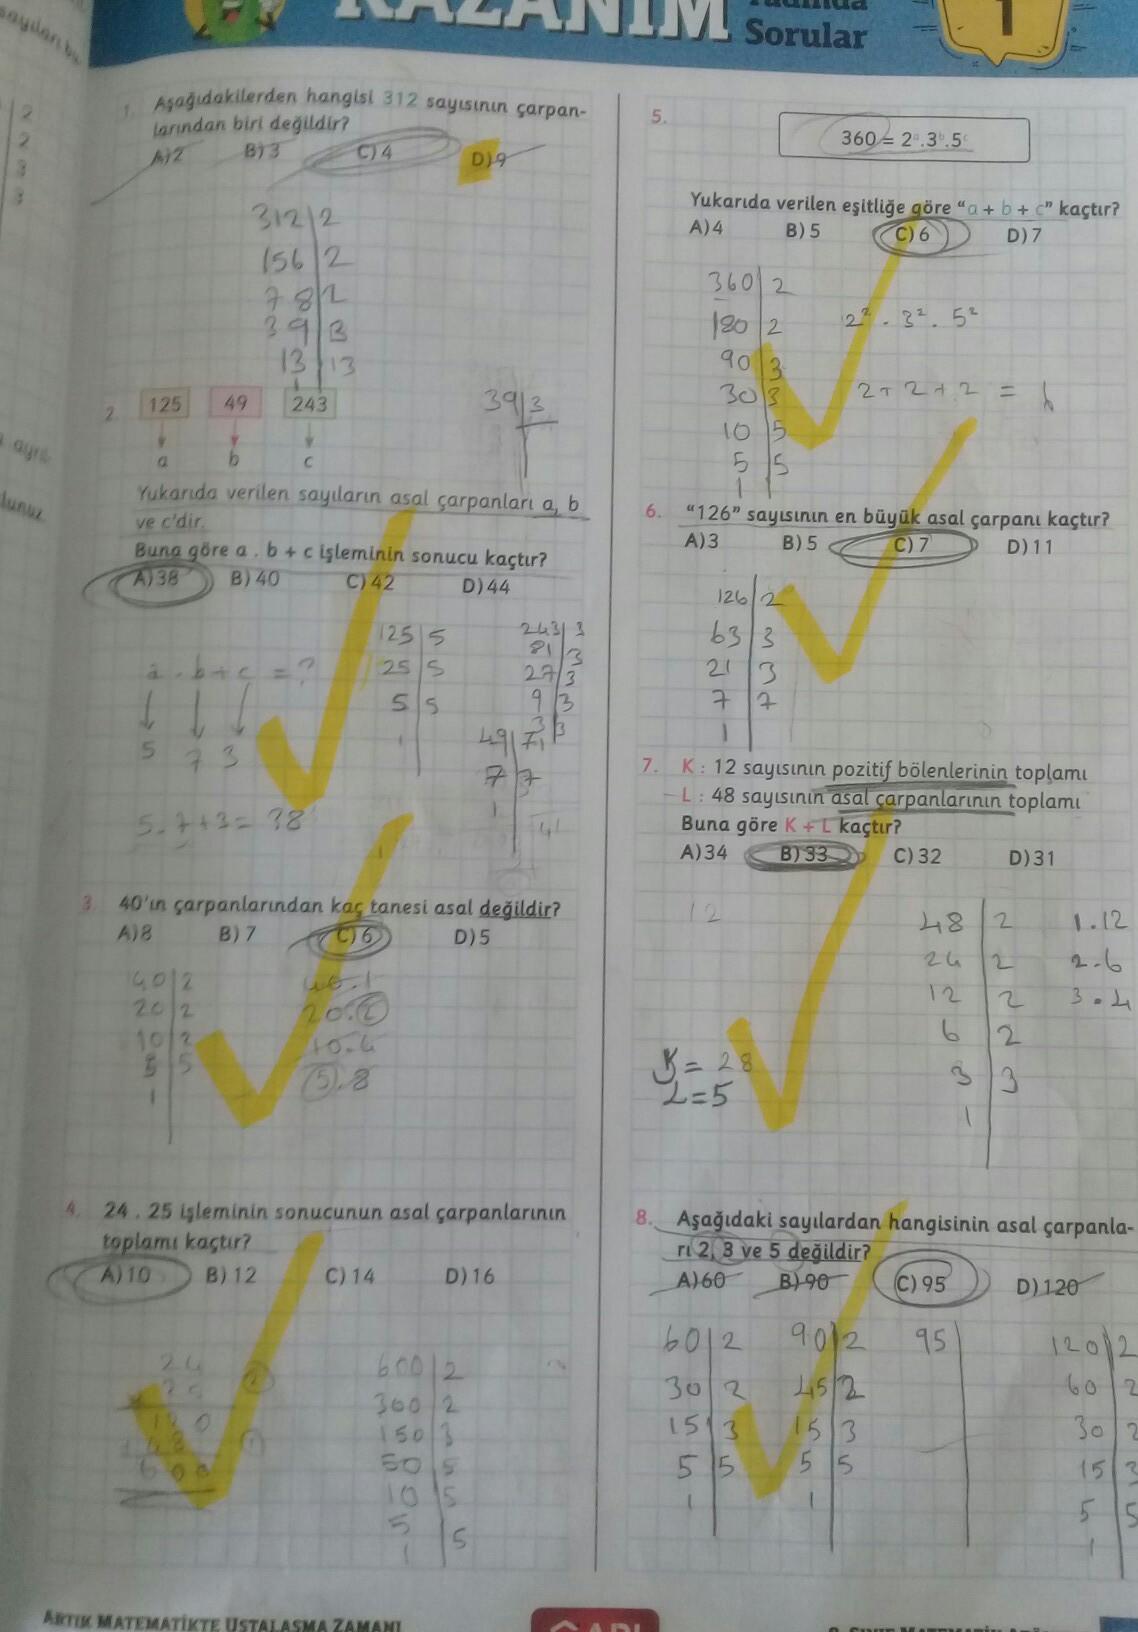 sayıları
KAZANIM
Sorular
1
2
2
3
3
1. Aşağıdakilerden hangisi 312 sayısının çarpan-
larından biri değildir?
A) 2 B) 3 C) 4 D) 9
312 2
156 2
78 2
39 3
13 13
1
39 3
2. 125 49 243
a b c
Yukarıda verilen sayıların asal çarpanları a, b
ve c'dir.
Buna göre a . b + c işleminin sonucu kaçtır?
A) 38 B) 40 C) 42 D) 44
a . b + c = ?
5 7 3
5.7+3= 38
125 5
25 5
5 5
1
243 3
81 3
27 3
9 3
3 3
1
49 7
7 7
1
3. 40'ın çarpanlarından kaç tanesi asal değildir?
A) 8 B) 7 C) 6 D) 5
40 2
20 2
10 2
5 5
1
40.1
20.2
10.4
5.8
4. 24 . 25 işleminin sonucunun asal çarpanlarının
toplamı kaçtır?
A) 10 B) 12 C) 14 D) 16
24
25
120
48
600
600 2
300 2
150 3
50 5
10 5
5 5
1
5. 360 = 2ᵃ.3ᵇ.5ᶜ
Yukarıda verilen eşitliğe göre "a + b + c" kaçtır?
A) 4 B) 5 C) 6 D) 7
360 2
180 2
90 3
30 3
10 5
5 5
1
2² . 3² . 5²
2 + 2 + 2 = 6
6. "126" sayısının en büyük asal çarpanı kaçtır?
A) 3 B) 5 C) 7 D) 11
126 2
63 3
21 3
7 7
1
7. K : 12 sayısının pozitif bölenlerinin toplamı
L : 48 sayısının asal çarpanlarının toplamı
Buna göre K + L kaçtır?
A) 34 B) 33 C) 32 D) 31
12
K = 28
L = 5
48 2
24 2
12 2
6 2
3 3
1
1.12
2.6
3.4
8. Aşağıdaki sayılardan hangisinin asal çarpanla-
rı 2, 3 ve 5 değildir?
A) 60 B) 90 C) 95 D) 120
60 2
30 2
15 3
5 5
1
90 2
45 2
15 3
5 5
1
95
120 2
60 2
30 2
15 3
5 5
1
ARTIK MATEMATİKTE USTALAŞMA ZAMANI